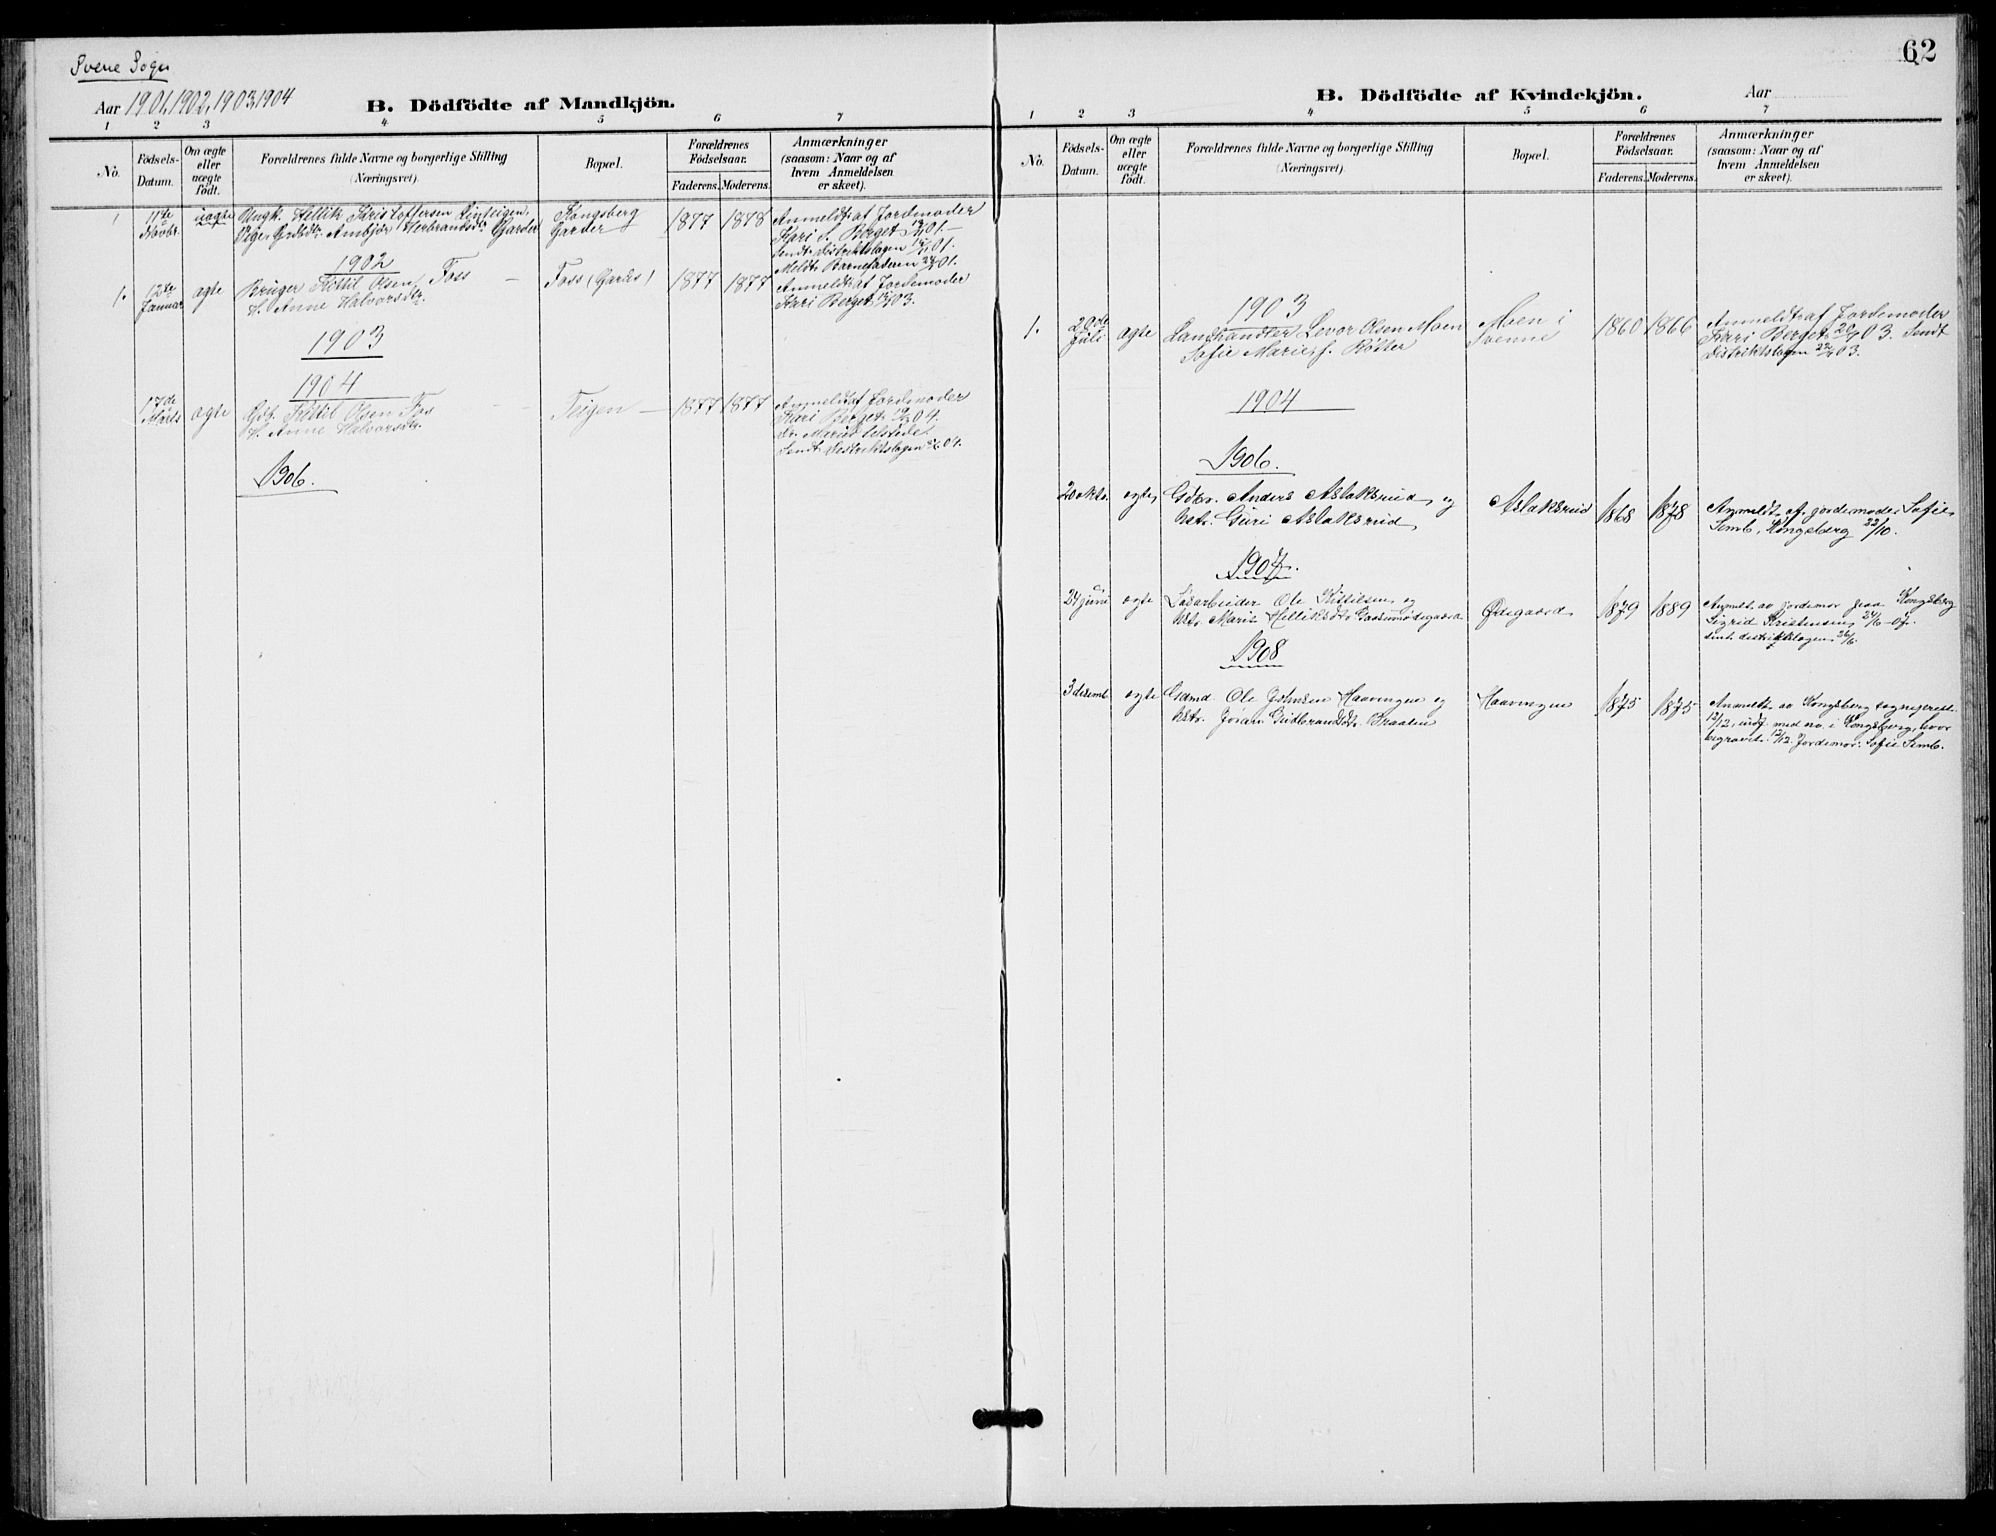 Svene Sogn
Aar 1901, 1902, 1903, 1904
B. Dödfödte af Mandkjön.
1 2 3 4 5 6 7
No.
Födsels-
Datum.
Om ægte
eller
uægte
födt.
Forældrenes fulde Navne og borgerlige Stilling
(Næringsvei).
Bopæl.
Forældrenes
Födselsaar.
Faderens. Moderens.
Anmærkninger
(saasom: Naar og af
hvem Anmeldelsen
er skeet).
1 11te Novbr. uægte
Ungk. Hellik Kristoffersen
Pige, Ambjør Herbrandsdr. Garder
Kongsberg
Garder
1877 1878
Anmeldt af Jordemoder
Kari S. Berget 01.
Sendt Distriktslægen 01.
Meldt Barnefaderen 01.
1902
1. 12te Januar ægte
Bruger Kittil Olsen Foss
H. Anne Halvorsdr.
Foss (Garaas)
1877 1877
Anmeldt af Jordemoder
Kari Berget 03.
1903
1904
17de Marts ægte
Gbr. Kittil Olsen Foss
H. Anne Halvorsdr.
Teigen
1877 1877
Anmeldt af Jordemoder
Kari Berget 04.
Sendt Distriktslægen 04.
1906.
62
B. Dödfödte af Kvindekjön.
Aar
1 2 3 4 5 6 7
No.
Födsels-
Datum.
Om ægte
eller
uægte
födt.
Forældrenes fulde Navne og borgerlige Stilling
(Næringsvei).
Bopæl.
Forældrenes
Födselsaar.
Faderens. Moderens.
Anmærkninger
(saasom: Naar og af
hvem Anmeldelsen
er skeet).
1903
1. 20de Juli ægte
Landhandler Levor Olsen Moen
Sofie Marie f.
Moen i
Svenne
1860 1866
Anmeldt af Jordemoder
Kari Berget 20/7 03. Sendt
Distriktslægen 22/7 03.
1904
1906.
20 oktr. ægte,
Gbr. Anders Aslaksrud, og
hstr. Guri Aslaksrud,
Aslaksrud
1868 1878
Anmeldt af jordemoder Sofie
Semb, Kongsberg 22/10.
1907.
24 juni ægte
Løsarbeider Ole Kittilsen, og
hstr. Marie Helliksdtr.
Ødegaard
1879 1889
Anmeldt av jordemor paa Kongsberg
Sigrid Kristensen 24/6-07.
sendt distriktslægen 26/6.
1908
3 desemb. ægte
Gdmd. Ole Johnsen Haavingen og
hstr. Joran Gudbrandsdtr. Braaten
Haavingen
1875 1875
Anmeldt av Kongsberg sogneprest
12/12, indf. med no. i Kongsberg, hvor
begravet 12/12. Jordemor: Sofie Semb.